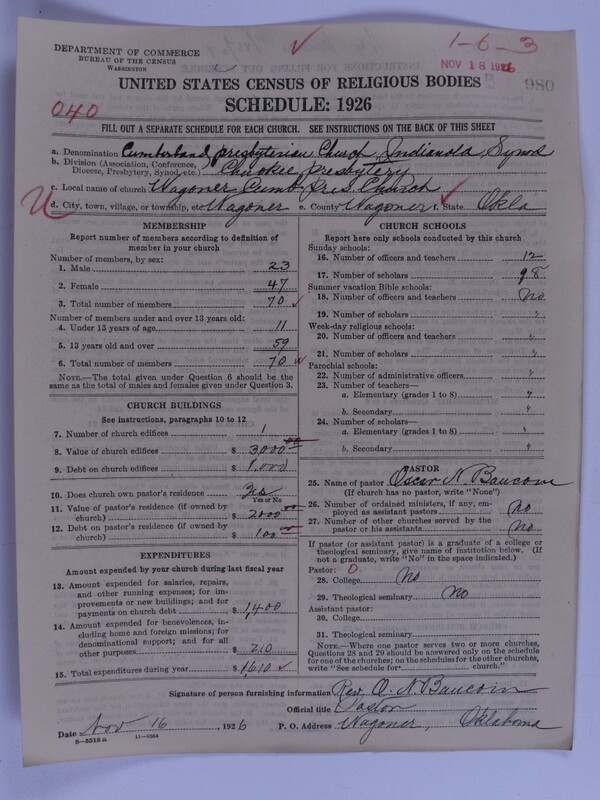 DEPARTMENT OF COMMERCE
BUREAU OF THE CENSUS
WASHINGTON
1-6-3
NOV 18 1926
980
UNITED STATES CENSUS OF RELIGIOUS BODIES
SCHEDULE: 1926
040
FILL OUT A SEPARATE SCHEDULE FOR EACH CHURCH. SEE INSTRUCTIONS ON THE BACK OF THIS SHEET
a. Denomination Cumberland presbyterian Church, Indianola, Synod
b. Division (Association, Conference, Diocese, Presbytery, Synod, etc.) Chrokee Presbytery
c. Local name of church Wagoner Cumb. Pres. Church
d. City, town, village, or township, etc Wagoner e. County Wagoner f. State Okla
MEMBERSHIP
Report number of members according to definition of member in your church
Number of members, by sex:
1. Male 23
2. Female 47
3. Total number of members 70
Number of members under and over 13 years old:
4. Under 13 years of age 11
5. 13 years old and over 59
6. Total number of members 70
NOTE.—The total given under Question 6 should be the same as the total of males and females given under Question 3.
CHURCH BUILDINGS
See instructions, paragraphs 10 to 12
7. Number of church edifices 1
8. Value of church edifices $ 3,000 00
9. Debt on church edifices $ 1,000
10. Does church own pastor's residence Yes
Yes or No
11. Value of pastor's residence (if owned by church) $ 2000
12. Debt on pastor's residence (if owned by church) $ 100
EXPENDITURES
Amount expended by your church during last fiscal year
13. Amount expended for salaries, repairs, and other running expenses; for improvements or new buildings; and for payments on church debt $ 1,400
14. Amount expended for benevolences, including home and foreign missions; for denominational support; and for all other purposes $ 210
15. Total expenditures during year $ 1,610
CHURCH SCHOOLS
Report here only schools conducted by this church
Sunday schools:
16. Number of officers and teachers 12
17. Number of scholars 98
Summer vacation Bible schools:
18. Number of officers and teachers No
19. Number of scholars "
Week-day religious schools:
20. Number of officers and teachers "
21. Number of scholars "
Parochial schools:
22. Number of administrative officers "
23. Number of teachers—
a. Elementary (grades 1 to 8) "
b. Secondary "
24. Number of scholars—
a. Elementary (grades 1 to 8) "
b. Secondary "
PASTOR
25. Name of pastor Oscar N. Baucom
(If church has no pastor, write "None")
26. Number of ordained ministers, if any, employed as assistant pastors No
27. Number of other churches served by the pastor or his assistants No
If pastor (or assistant pastor) is a graduate of a college or theological seminary, give name of institution below. (If not a graduate, write "No" in the space indicated.)
Pastor: 0.
28. College No
29. Theological seminary No
Assistant pastor:
30. College
31. Theological seminary
NOTE.—Where one pastor serves two or more churches, Questions 28 and 29 should be answered only on the schedule for one of the churches; on the schedules for the other churches, write "See schedule for church."
Signature of person furnishing information Rev. O. N. Baucom
Official title Pastor
Date Nov 16, 1926 P. O. Address Wagoner, Oklahoma
8-5518a 11-9264